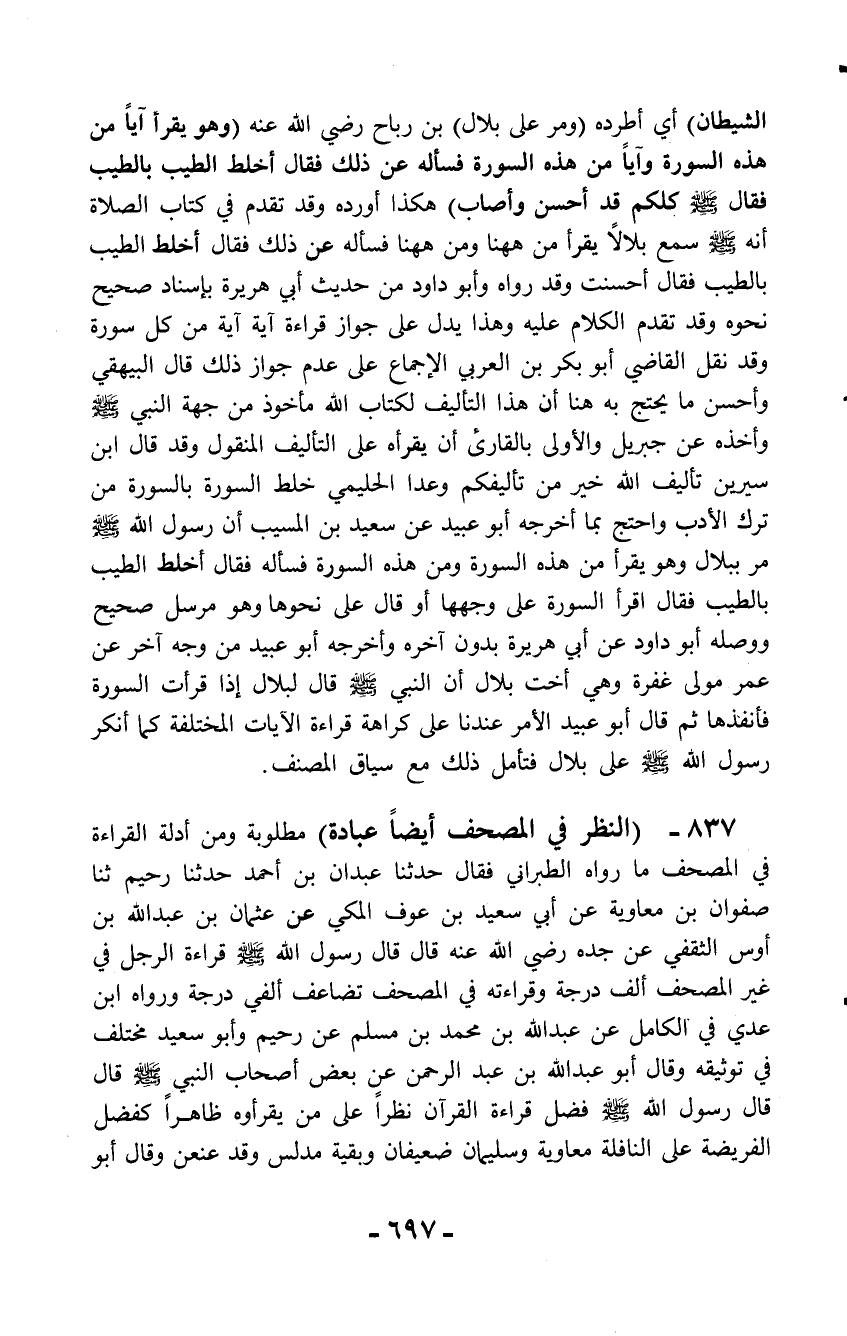 الشيطان) أي أطرده (ومر على بلال) بن رباح رضي الله عنه (وهو يقرأ آياً من
هذه السورة وآياً من هذه السورة فسأله عن ذلك فقال أخلط الطيب بالطيب
فقال ﷺ كلكم قد أحسن وأصاب) هكذا أورده وقد تقدم في كتاب الصلاة
أنه ﷺ سمع بلالاً يقرأ من ههنا ومن ههنا فسأله عن ذلك فقال أخلط الطيب
بالطيب فقال أحسنت وقد رواه وأبو داود من حديث أبي هريرة بإسناد صحيح
نحوه وقد تقدم الكلام عليه وهذا يدل على جواز قراءة آية آية من كل سورة
وقد نقل القاضي أبو بكر بن العربي الإجماع على عدم جواز ذلك قال البيهقي
وأحسن ما يحتج به هنا أن هذا التأليف لكتاب الله مأخوذ من جهة النبي ﷺ
وأخذه عن جبريل والأولى بالقارئ أن يقرأه على التأليف المنقول وقد قال ابن
سيرين تأليف الله خير من تأليفكم وعدا الحليمي خلط السورة بالسورة من
ترك الأدب واحتج بما أخرجه أبو عبيد عن سعيد بن المسيب أن رسول الله ﷺ
مر ببلال وهو يقرأ من هذه السورة ومن هذه السورة فسأله فقال أخلط الطيب
بالطيب فقال اقرأ السورة على وجهها أو قال على نحوها وهو مرسل صحيح
ووصله أبو داود عن أبي هريرة بدون آخره وأخرجه أبو عبيد من وجه آخر عن
عمر مولى غفرة وهي أخت بلال أن النبي ﷺ قال لبلال إذا قرأت السورة
فأنفذها ثم قال أبو عبيد الأمر عندنا على كراهة قراءة الآيات المختلفة كما أنكر
رسول الله ﷺ على بلال فتأمل ذلك مع سياق المصنف.
٨٣٧ - (النظر في المصحف أيضاً عبادة) مطلوبة ومن أدلة القراءة
في المصحف ما رواه الطبراني فقال حدثنا عبدان بن أحمد حدثنا رحيم ثنا
صفوان بن معاوية عن أبي سعيد بن عوف المكي عن عثمان بن عبدالله بن
أوس الثقفي عن جده رضي الله عنه قال قال رسول الله ﷺ قراءة الرجل في
غير المصحف ألف درجة وقراءته في المصحف تضاعف ألفي درجة ورواه ابن
عدي في الكامل عن عبدالله بن محمد بن مسلم عن رحيم وأبو سعيد مختلف
في توثيقه وقال أبو عبدالله بن عبد الرحمن عن بعض أصحاب النبي ﷺ قال
قال رسول الله ﷺ فضل قراءة القرآن نظراً على من يقرأوه ظاهراً كفضل
الفريضة على النافلة معاوية وسليمان ضعيفان وبقية مدلس وقد عنعن وقال أبو
- ٦٩٧ -